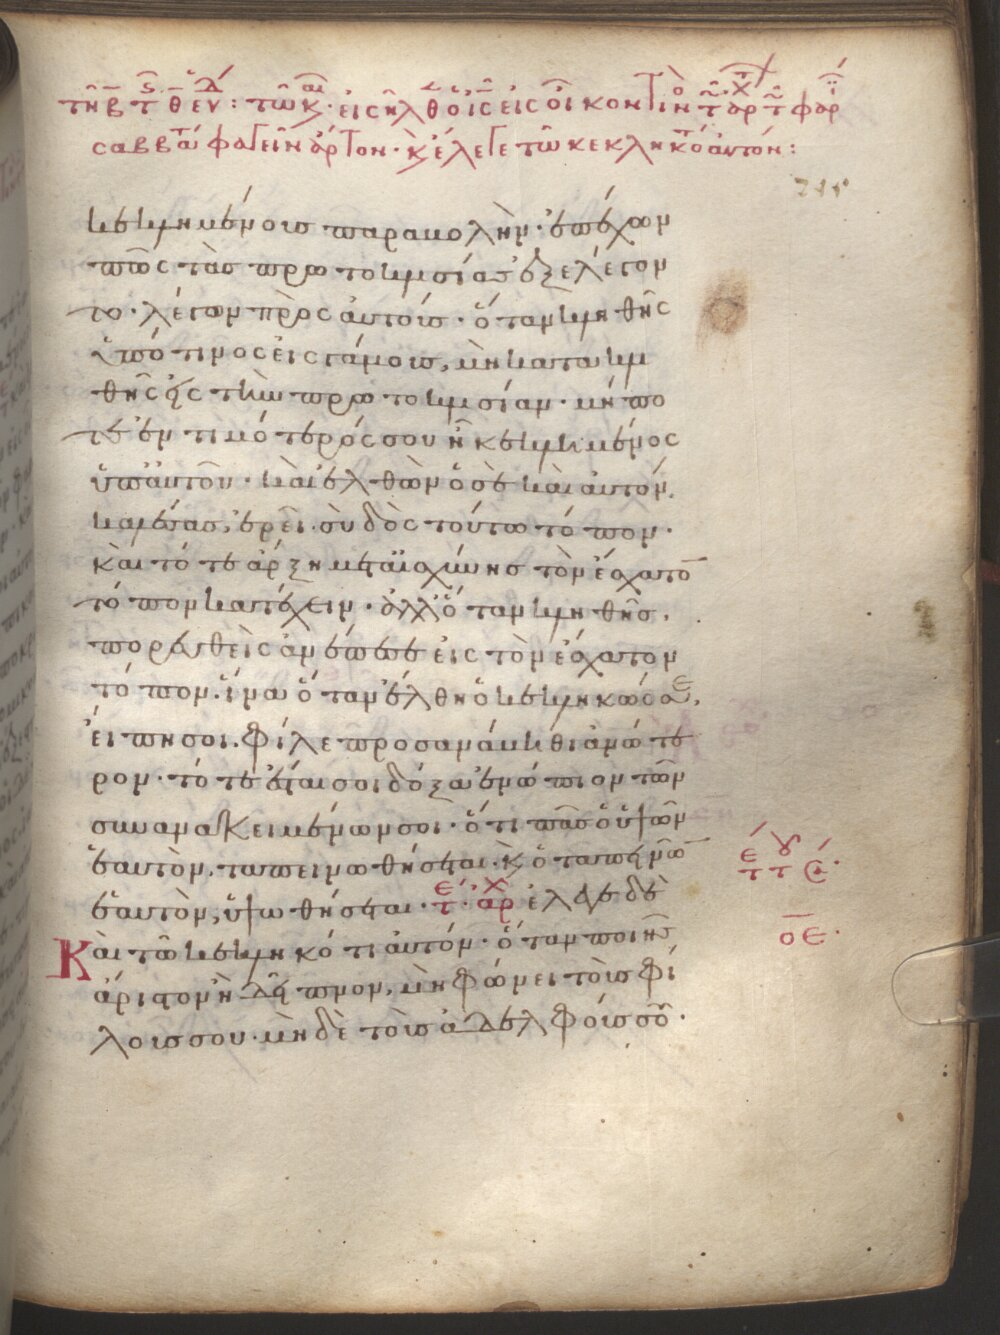 τῆ β τ θ εν : τῶ κ · εἰσῆλθ ὁ ις εἰς οἶκον τιν τ αρ τ φαρ
σαββα φαγεῖν ἄρτον · κ ἔλεγε τῶ κεκληκοτ αυτόν :
215
κεκλημένοις παραβολὴν · ἐπέχων
πῶς τὰς πρωτοκλησίας ἐξελέγον
το · λέγων πρὸς αὐτούς · ὅταν κληθῆς
ὑπό τινος εἰς γάμους, μὴ κατακλι
θῆς εἰς τὴν πρωτοκλησίαν · μή πο
τε ἐντιμότερός σου ἦ κεκλιμένος
ὑπ' αὐτοῦ · καὶ ἐλθὼν ὁ σὲ καὶ αὐτὸν
καλέσας, ἐρεῖ · σὺ δὸς τούτω τόπον ·
καὶ τότε ἄρξη μετ' αἰσχύνης τὸν ἔσχατο
τόπον κατέχειν · ἀλλ' ὅταν κληθῆς,
πορευθεὶς ἀνάπεσε εἰς τὸν ἔσχατον
τόπον · ἵνα ὅταν ἔλθη ὁ κεκληκώς σε,
εἴπη σοι · φίλε προσανάβηθι ἀνώτε
ρον · τότε ἔσται σοι δόξα ἐνώπιον τῶν
συνανακειμένων σοι · ὅτι πᾶς ὁ ὑψῶν
ἑαυτὸν, ταπεινωθήσεται · κ ὁ ταπεινῶ
ἑαυτὸν, ὑψωθήσεται · τ · αρ ἔλεγε δὲ
Καὶ τῶ κεκληκότι αὐτόν · ὅταν ποιῆς
ἄριστον ἢ δεῖπνον, μὴ φώνει τοὺς φί
λους σου · μηδὲ τοὺς ἀδελφούς σου ·
οε ·